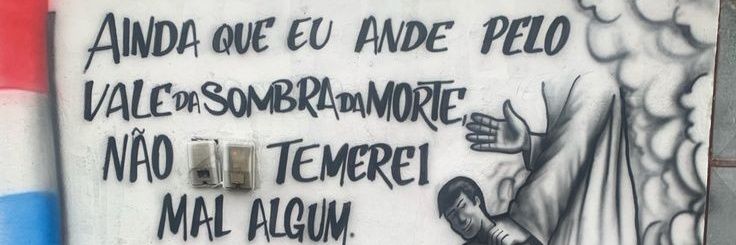 AINDA QUE EU ANDE PELO
VALE DA SOMBRA DA MORTE,
NÃO TEMEREI
MAL ALGUM.